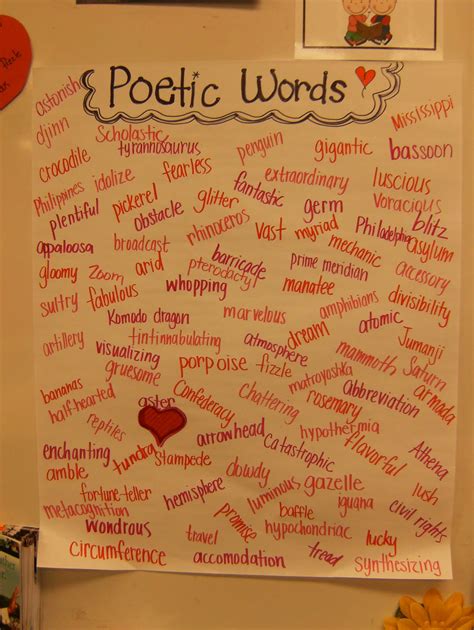 Poetic Words
astonish
Mississippi
djinn
Scholastic
tyrannosaurus
penguin
gigantic
bassoon
crocodile
fearless
extraordinary
luscious
Philippines
idolize
fantastic
Voracious
plentiful
pickerel
glitter
germ
blitz
obstacle
rhinoceros
vast
myriad
Philadelphia
asylum
appaloosa
broadcast
barricade
mechanic
gloomy
Zoom
arid
pterodactyl
prime meridian
accessory
sultry
fabulous
whopping
manatee
divisibility
Komodo dragon
marvelous
amphibians
atomic
artillery
tintinnabulating
dream
Jumanji
visualizing
atmosphere
gruesome
porpoise
fizzle
mammoth
Saturn
bananas
matryoshka
half-hearted
aster
Confederacy
Chattering
rosemary
Abbreviation
armada
reptiles
arrowhead
hypothermia
enchanting
tundra
Stampede
Catastrophic
flavorful
Athena
amble
dowdy
gazelle
fortune-teller
hemisphere
luminous
iguana
lush
metacognition
promise
baffle
civil rights
wondrous
travel
hypochondriac
lucky
circumference
accomodation
tread
synthesizing